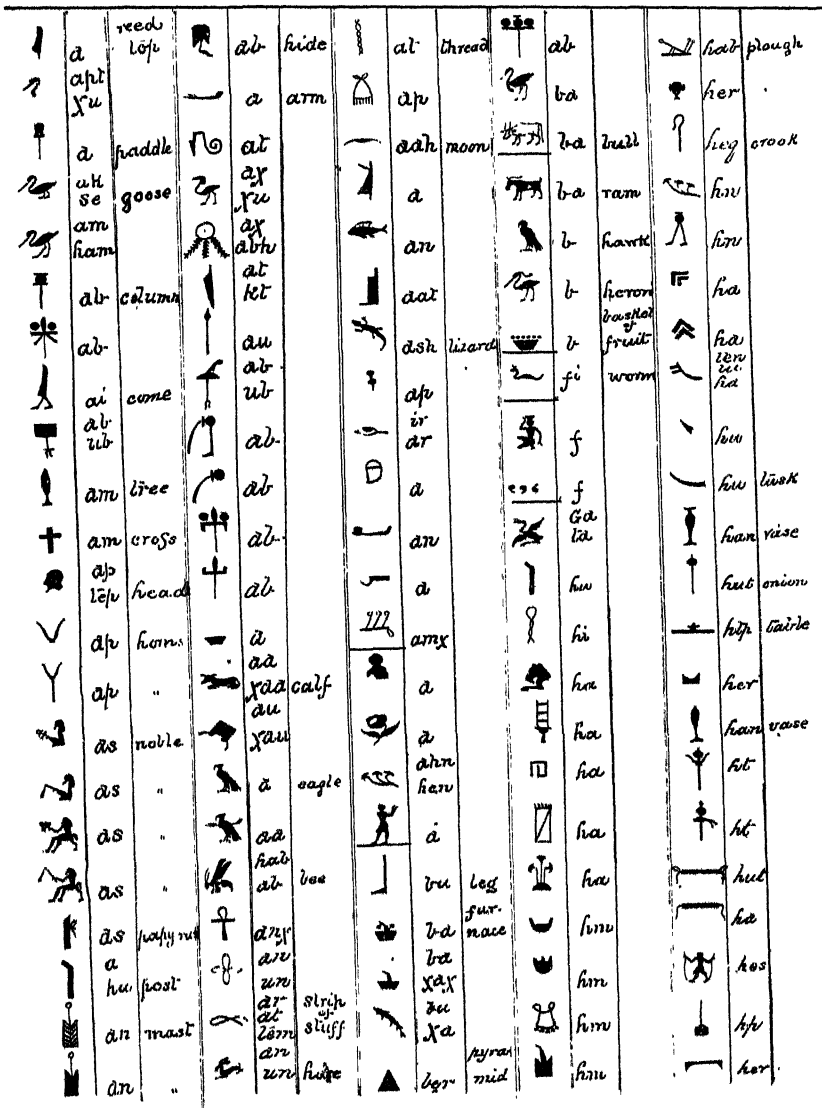 a reed top
apt
χu
a paddle
uk
se goose
am
ham
ab column
ab
ai come
ab
ub
am tree
am cross
ap
tep head
ap horns
ap "
as noble
as "
as "
as "
as papyrus
a
hu post
an mast
an "
ab hide
a arm
at
aχ
χu
aχ
abh
at
kt
au
ab
ub
ab
ab
ab
ab
a
aa
χaa calf
au
χau
a eagle
aa
hab
ab bee
anχ
an
un
ar strip
at of
tem stuff
an
un hare
at thread
ap
aah moon
a
an
aat
ash lizard
ap
ir
ar
a
an
a
amχ
a
a
ahn
hen
a
bu leg
ba furnace
ba
χaχ
χa
ber pyramid
ab
ba
ba bull
ba ram
b hawk
b heron
b basket of fruit
fi worm
f
f
Ga
ta
hu
hi
ha
ha
ha
ha
ha
hm
hm
hm
hm
hab plough
her
heq crook
hn
hn
ha
ha
ha
hu
hu tusk
han vase
hut onion
htp table
her
han vase
ht
ht
hut
ha
hes
hp
her